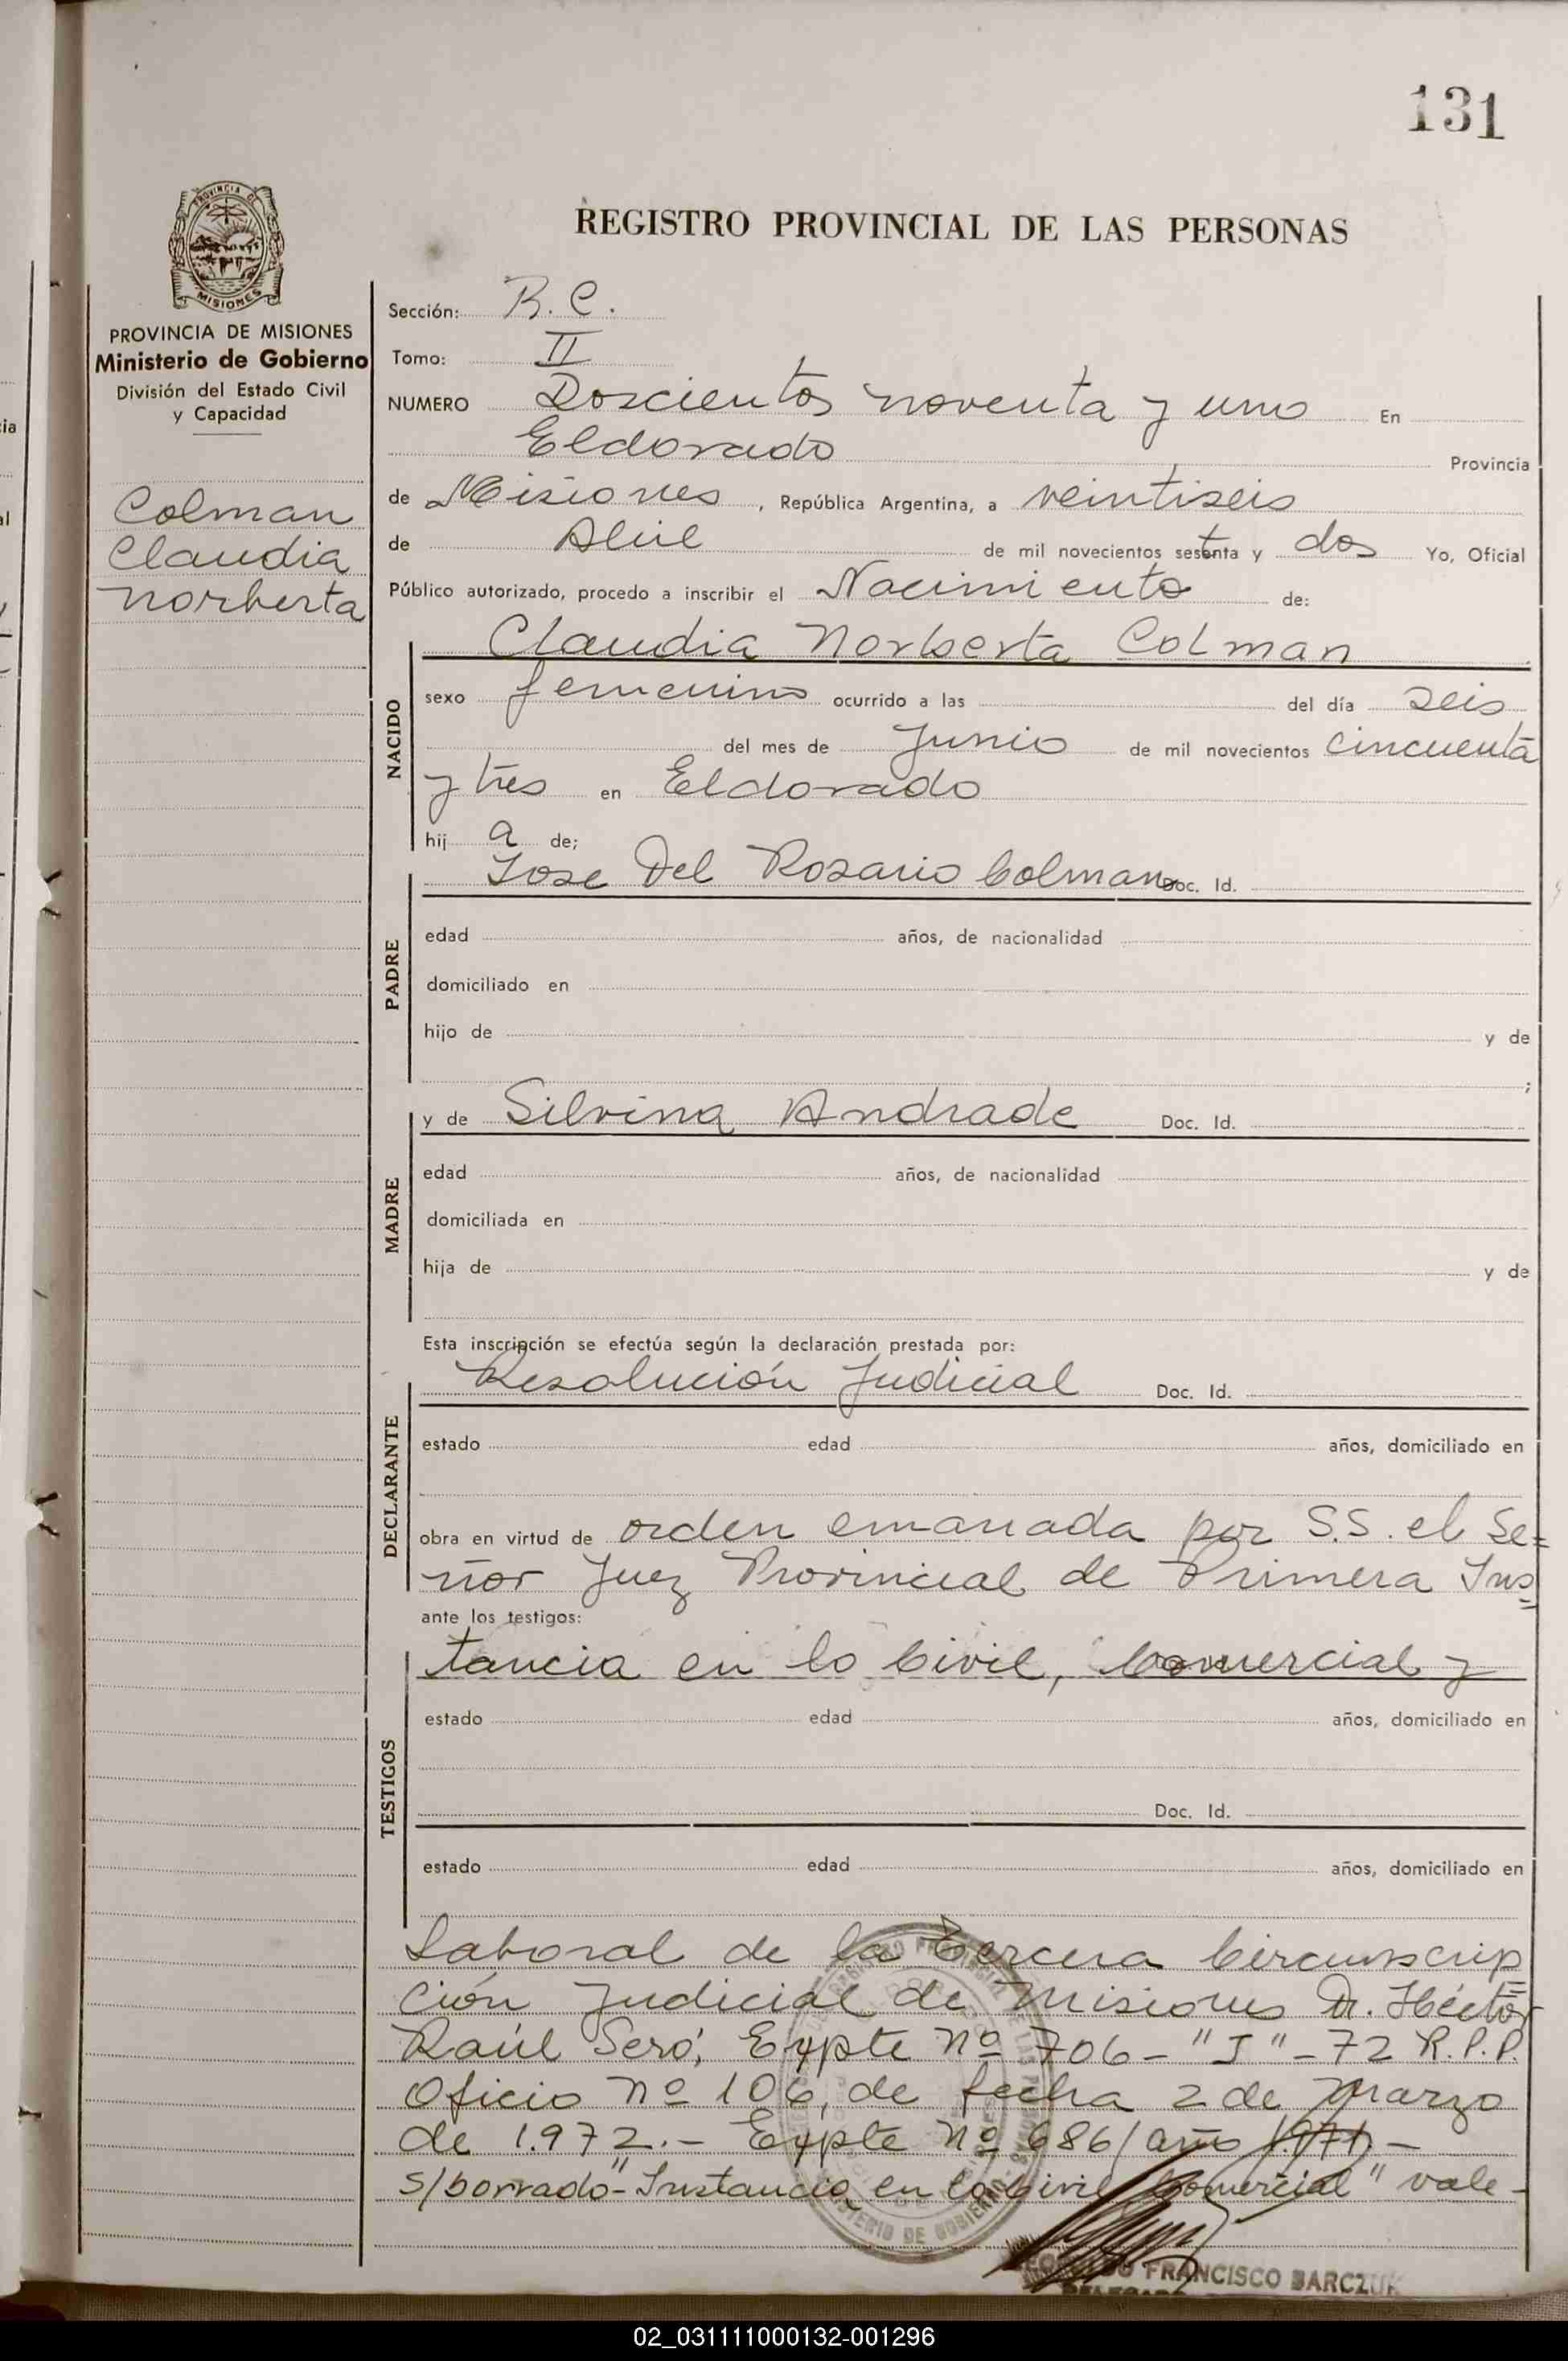 131
PROVINCIA DE
MISIONES
REGISTRO PROVINCIAL DE LAS PERSONAS
PROVINCIA DE MISIONES
Ministerio de Gobierno
División del Estado Civil
y Capacidad
Colman
Claudia
Norberta
Sección: R.C.
Tomo: II
NUMERO Doscientos noventa y uno En
Eldorado Provincia
de Misiones, República Argentina, a veintiseis
de Abril de mil novecientos setenta y dos Yo, Oficial
Público autorizado, procedo a inscribir el Nacimiento de:
NACIDO
Claudia Norberta Colman
sexo femenino ocurrido a las del día seis
del mes de Junio de mil novecientos cincuenta
y tres en Eldorado
hij a de;
PADRE
Jose Del Rosario Colman Doc. Id.
edad años, de nacionalidad
domiciliado en
hijo de y de
;
MADRE
y de Silvina Andrade Doc. Id.
edad años, de nacionalidad
domiciliada en
hija de y de
Esta inscripción se efectúa según la declaración prestada por:
DECLARANTE
Resolución Judicial Doc. Id.
estado edad años, domiciliado en
obra en virtud de orden emanada por S.S. el Se=
ñor Juez Provincial de Primera Ins=
ante los testigos:
TESTIGOS
tancia en lo Civil, Comercial y
estado edad años, domiciliado en
Doc. Id.
estado edad años, domiciliado en
Laboral de la Tercera Circunscrip=
ción Judicial de Misiones Dr. Héctor
Raúl Seró; Expte Nº 706-"J"-72 R.P.P.
Oficio Nº 106, de fecha 2 de Marzo
de 1.972.- Expte Nº 686/año 1.971.-
S/borrado-"Instancia en lo Civil, Comercial" vale-
FRANCISCO BARCZUK
02_031111000132-001296